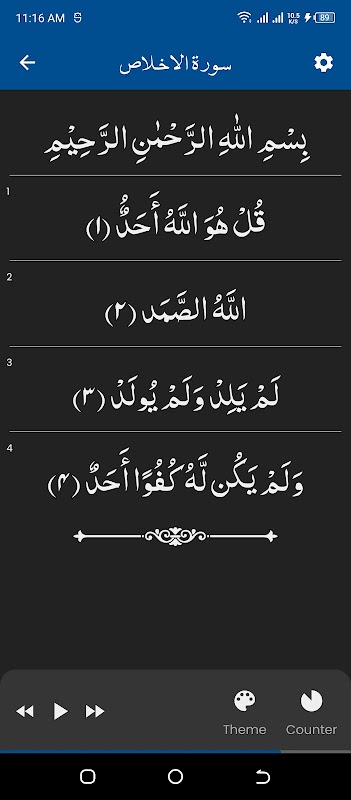 11:16 AM
10.5 K/S
89
سورة الاخلاص
بِسْمِ اللهِ الرَّحْمٰنِ الرَّحِيْمِ
1
قُلْ هُوَ اللَّهُ أَحَدٌ (۱)
2
اللَّهُ الصَّمَد (۲)
3
لَمْ يَلِدْ وَلَمْ يُولَدْ (۳)
4
وَلَمْ يَكُن لَّهُ كُفُوًا أَحَدٌ (۴)
Theme
Counter